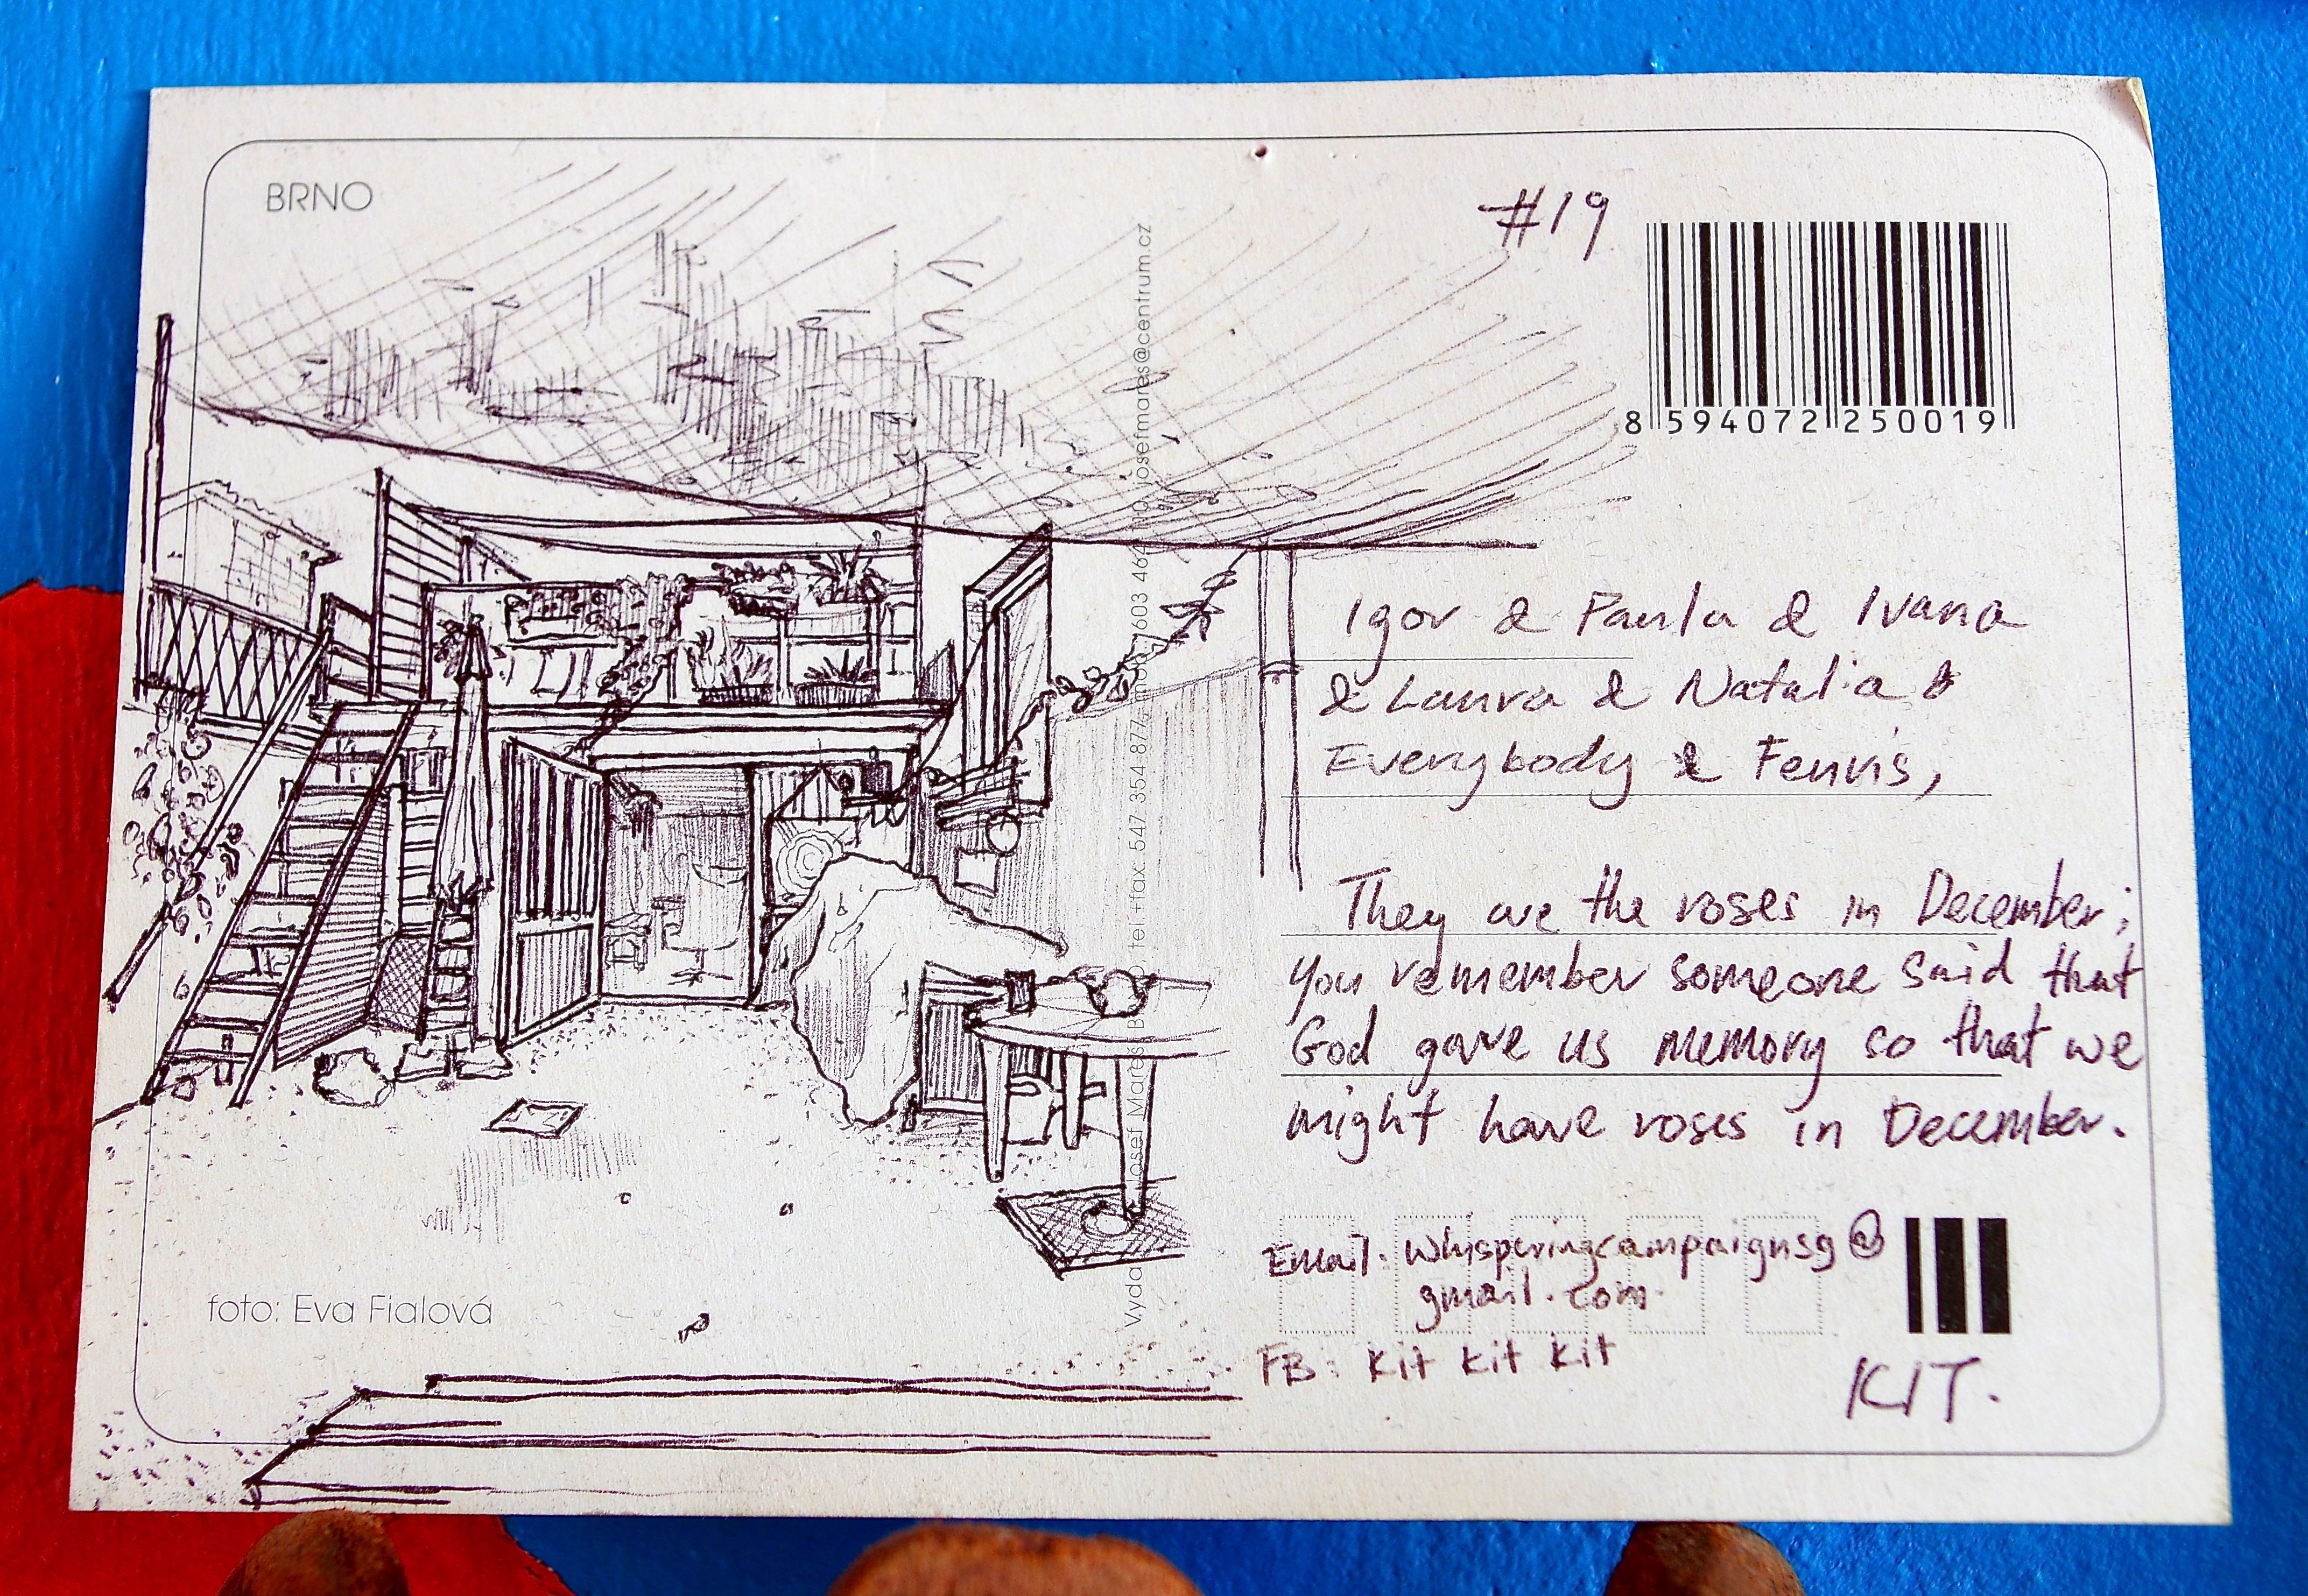 BRNO
#19
8 594072 250019
Igor & Paula & Ivana
& Laura & Natalia &
Everybody & Fenris,
They are the roses in December;
you remember someone said that
God gave us memory so that we
might have roses in December.
Email: whisperingcampaignsg@
gmail.com
FB: kit kit kit
KIT.
foto: Eva Fialová
Josef Mareš tel.+fax. 547 354 877, 603 josefmares@centrum.cz